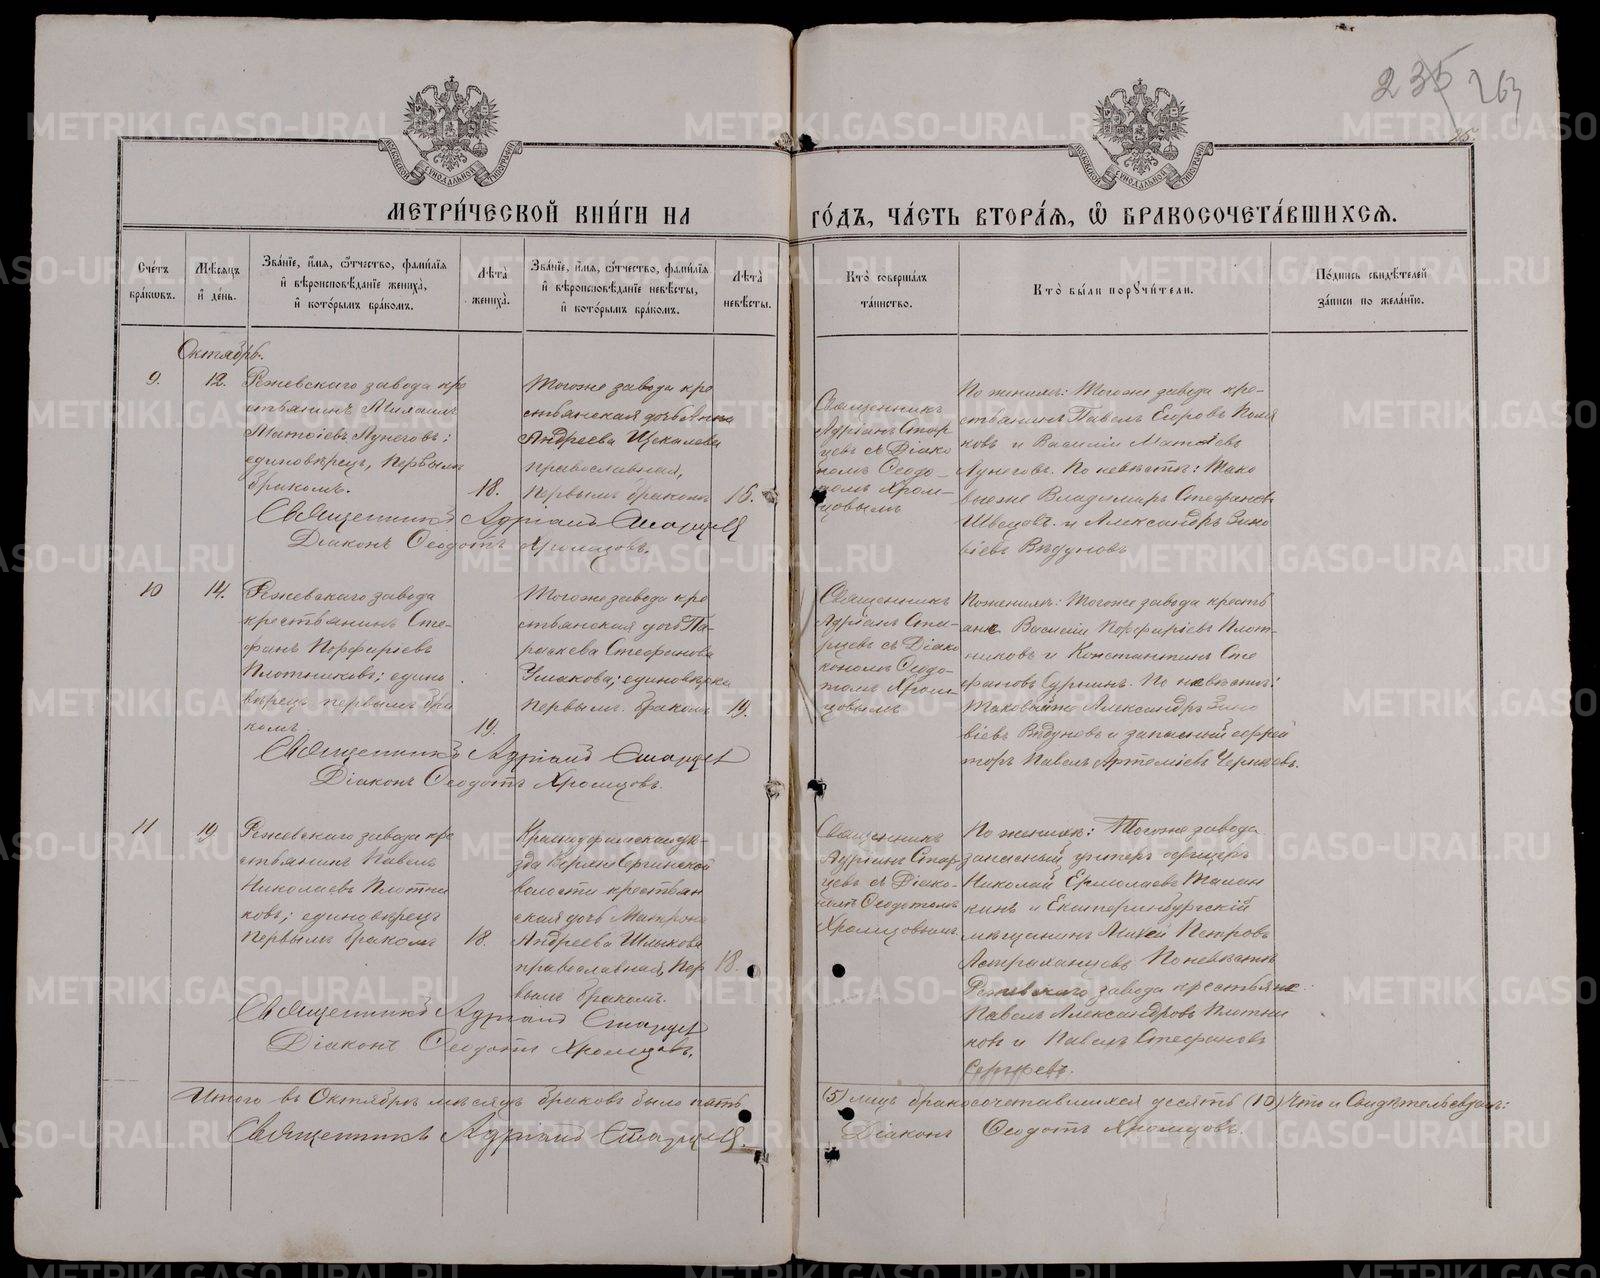 235 263
25.
МОСКОВСКОЙ СУНОДАЛЬНОЙ ТИПОГРАФIИ
МОСКОВСКОЙ СУНОДАЛЬНОЙ ТИПОГРАФIИ
МЕТРИ́ЧЕСКОЙ КНИ́ГИ НА
ГО́ДЪ, ЧА́СТЬ ВТОРА́Я, Ѡ҆ БРАКОСОЧЕТА́ВШИХСЯ.
Сче́тъ бра́ковъ.
Мѣ́сяцъ и҆ де́нь.
Зва́нїе, и҆́мя, ѻ҆́тчество, фами́лїя
и҆ вѣроисповѣ́данїе жениха̀,
и҆ кото́рымъ бра́комъ.
Лѣ́та̀ жениха̀.
Зва́нїе, и҆́мя, ѻ҆́тчество, фами́лїя
и҆ вѣроисповѣ́данїе невѣ́сты,
и҆ кото́рымъ бра́комъ.
Лѣ́та̀ невѣ́сты.
Кто̀ соверша́лъ
та́инство.
Кто̀ бы́ли порꙋчи́тели.
По́дпись свидѣ́телей
за́писи по жела́нїю.
Октябрь.
9.
12.
Режевскаго завода кре
стьянинъ Михаилъ
Матѳіевъ Лунеговъ;
единовѣрецъ, первымъ
бракомъ.
18.
Тогоже завода кре
стьянская дочь
Андреева Щекалева
православная,
первымъ бракомъ
16.
Священникъ
Адріанъ Стар
цевъ съ Діако
номъ Ѳеодо-
томъ Хром-
цовымъ
По женихѣ: Тогоже завода кре-
стьянинъ Павелъ Егоровъ Поля
ковъ и Василій Матѳіевъ
Лунеговъ. По невѣстѣ: Тако
выеже Владимиръ Стефановъ
Швецовъ и Александръ Зино
віевъ Вѣдуновъ
Священникъ Адріанъ Старцевъ
Діаконъ Ѳеодотъ Хромцовъ.
10
14.
Режевскаго завода
крестьянинъ Сте-
фанъ Порфиріевъ
Плотниковъ; едино
вѣрецъ первымъ бра
комъ.
19.
Тогоже завода кре
стьянская дочь Па-
раскева Стефанова
Ушакова; единовѣрка
первымъ бракомъ
19.
Священникъ
Адріанъ Ста-
рцевъ съ Діако
кономъ Ѳеодо-
томъ Хром-
цовымъ
По женихѣ: Тогоже завода кресть
яне Василій Порфиріевъ Плот-
никовъ и Константинъ Сте
фановъ Сурнинъ. По невѣстѣ:
Таковойже Александръ Зино
віевъ Вѣдуновъ и запасный ефрей
торъ Павелъ Артеміевъ Черновъ.
Священникъ Адріанъ Старцев
Діаконъ Ѳеодотъ Хромцовъ.
11
19
Режевскаго завода кре
стьянинъ Павелъ
Николаевъ Плотни
ковъ; единовѣрецъ
первымъ бракомъ
18.
Красноуфимскаго уѣ-
зда Верхне Сергинской
волости крестьян
ская дочь Матрона
Андреева Шлыкова
православная, пер
вымъ бракомъ.
18.
Священникъ
Адріанъ Стар-
цевъ съ Діако-
номъ Ѳеодотомъ
Хромцовымъ.
По женихѣ: Тогоже завода
запасный унтеръ офицеръ
Николай Ермолаевъ Талан
кинъ и Екатеринбургскій
мѣщанинъ Михей Петровъ
Астраханцевъ По невѣстѣ
Режевскаго завода крестьяне:
Павелъ Александровъ Плотни
ковъ и Павелъ Стефановъ
Сергѣевъ.
Священникъ Адріанъ Старцев
Діаконъ Ѳеодотъ Хромцовъ.
Итого въ Октябрѣ мѣсяцѣ браковъ было пять (5) лицъ бракосочетавшихся десять (10) Что и Свидѣтельствуемъ:
Священникъ Адріанъ Старцевъ. Діаконъ Ѳеодотъ Хромцовъ.
METRIKI.GASO-URAL.RU